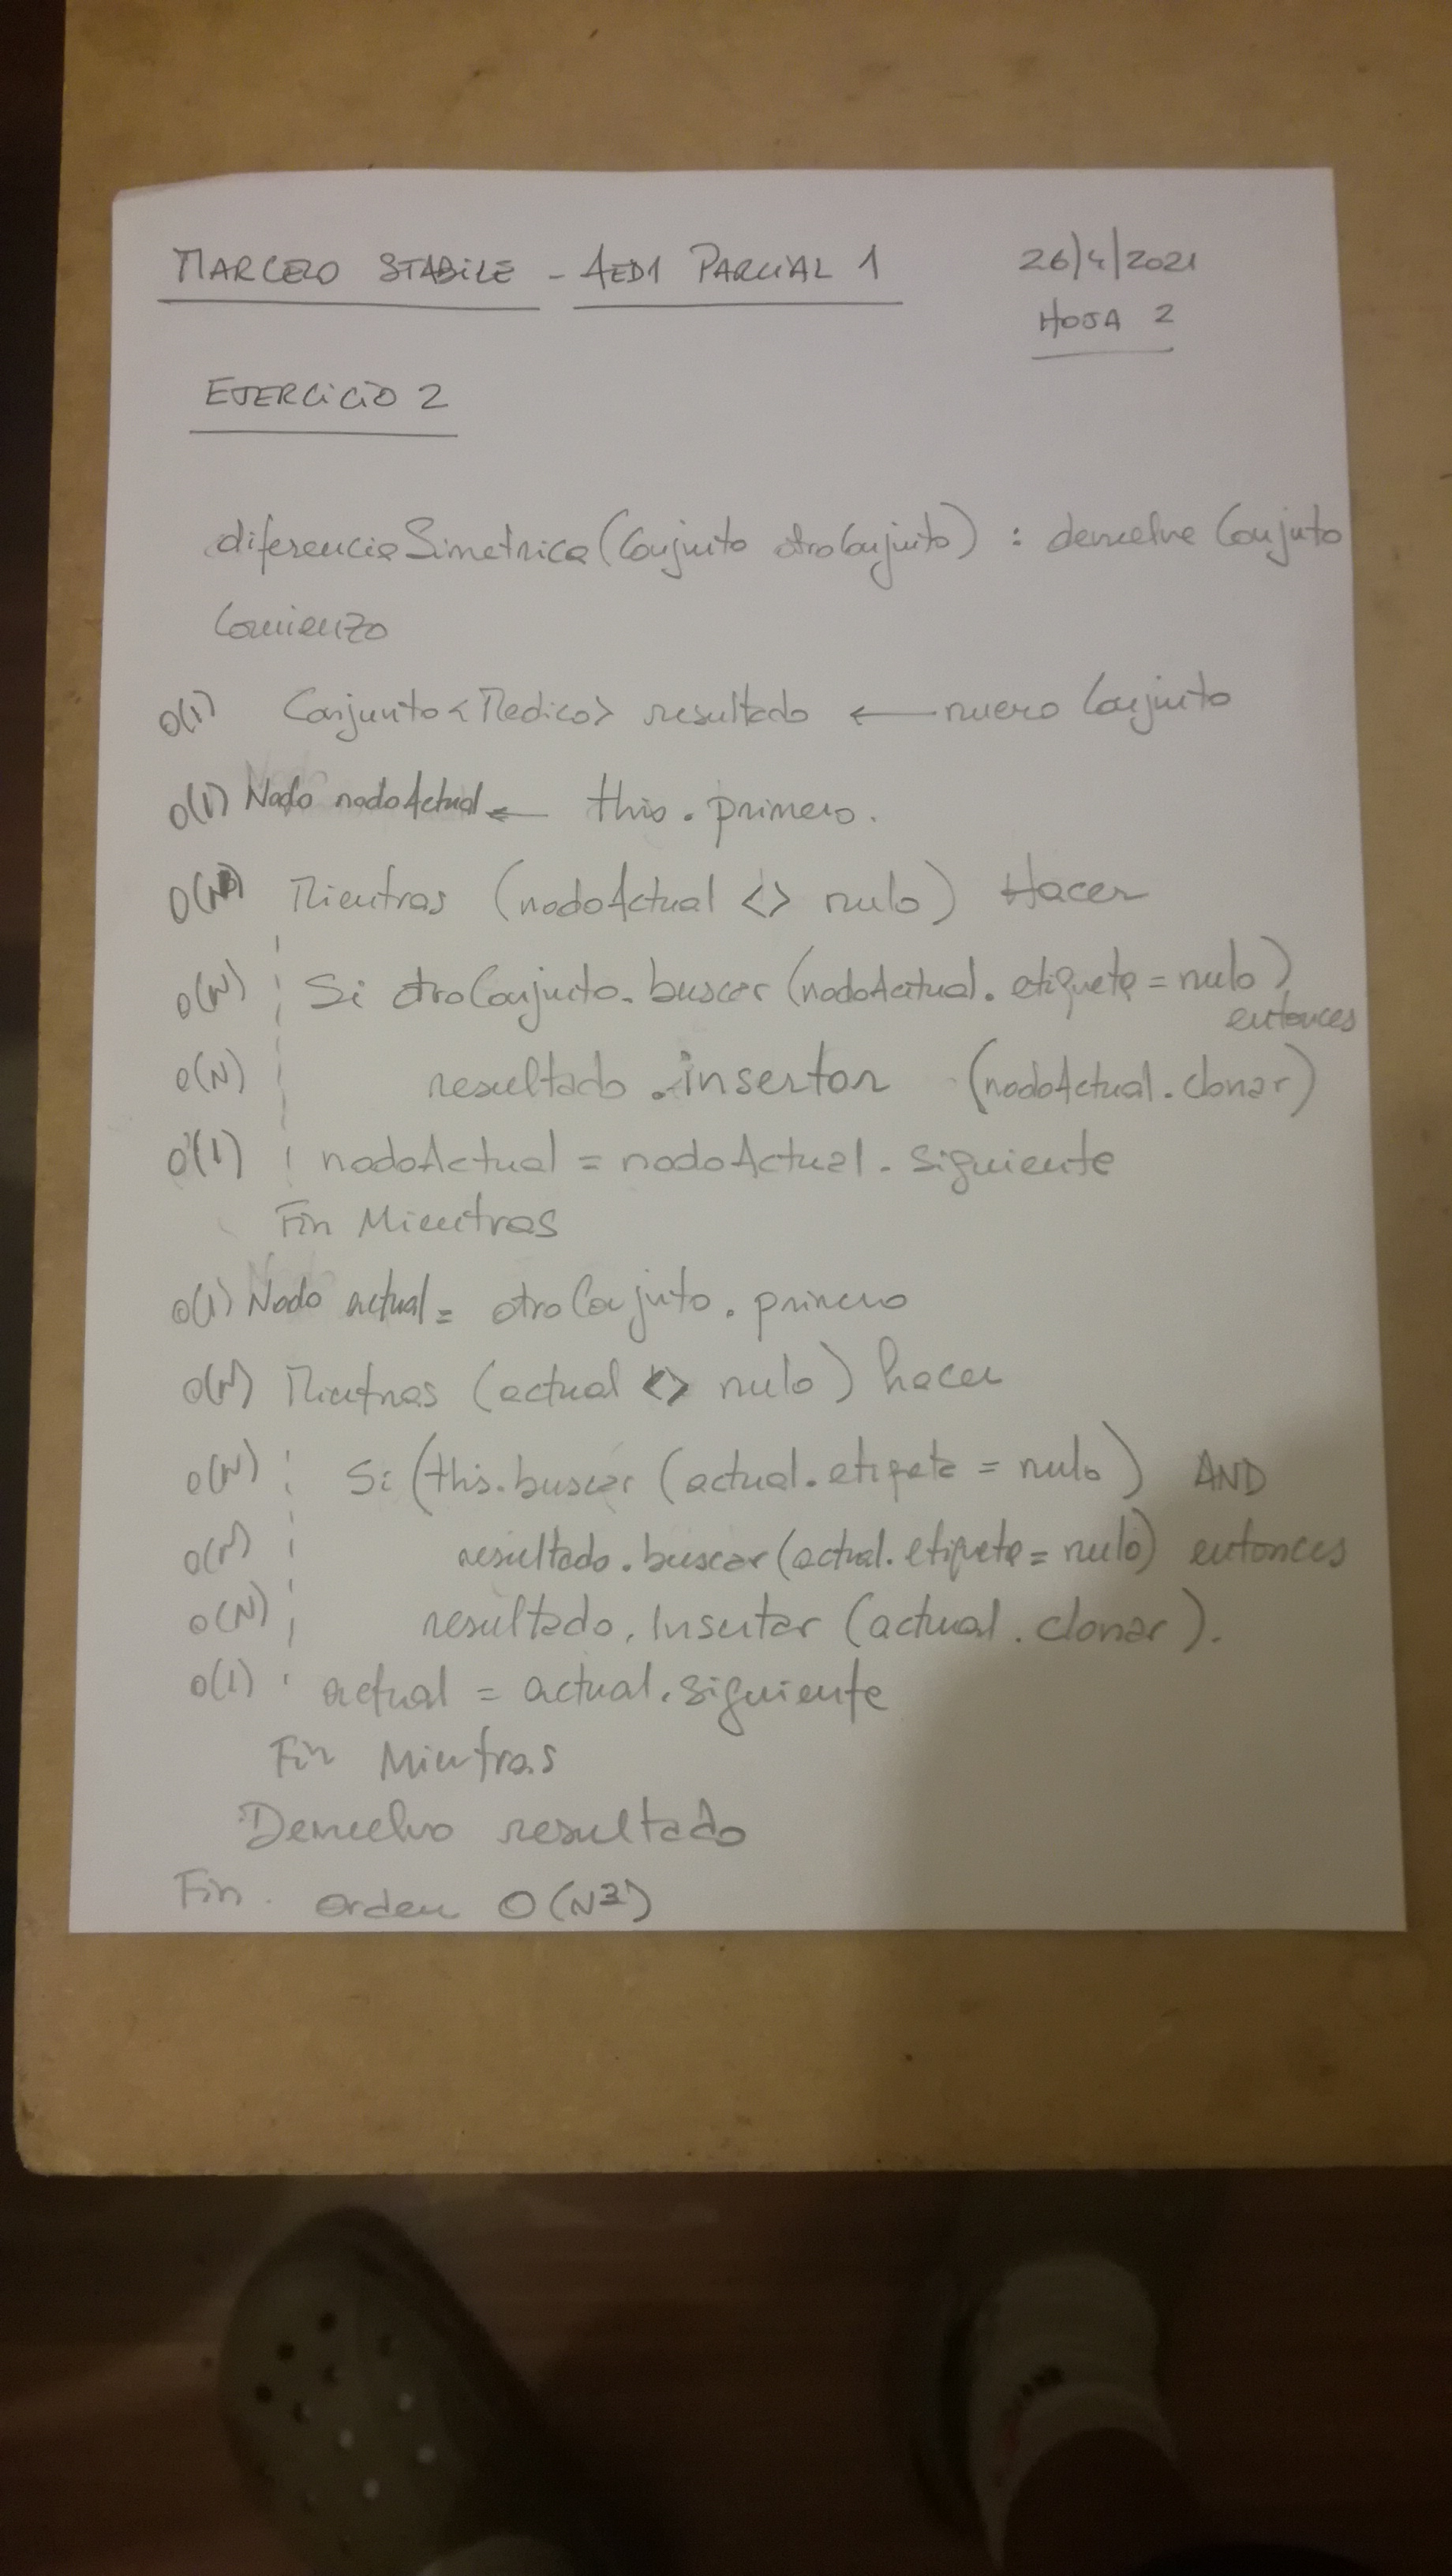 MARCELO STABILE - AED1 PARCIAL 1 26/4/2021
HOJA 2
EJERCICIO 2
diferenciaSimetrica(Conjunto otroConjunto) : devuelve Conjuto
Comienzo
O(1) Conjunto<Medico> resultado ← nuevo Conjunto
O(1) Nodo nodoActual ← this.primero.
O(N) Mientras (nodoActual <> nulo) Hacer
O(N) Si otroConjunto.buscar (nodoActual.etiqueta = nulo) entonces
O(N) resultado.insertar (nodoActual.clonar)
O(1) nodoActual = nodoActual.siguiente
Fin Mientras
O(1) Nodo actual = otroConjuto.primero
O(N) Mientras (actual <> nulo) hacer
O(N) Si (this.buscar (actual.etiqueta = nulo) AND
O(N) resultado.buscar (actual.etiqueta = nulo) entonces
O(N) resultado.Insertar (actual.clonar).
O(1) actual = actual.siguiente
Fin Mientras
Devuelvo resultado
Fin. orden O(N²)